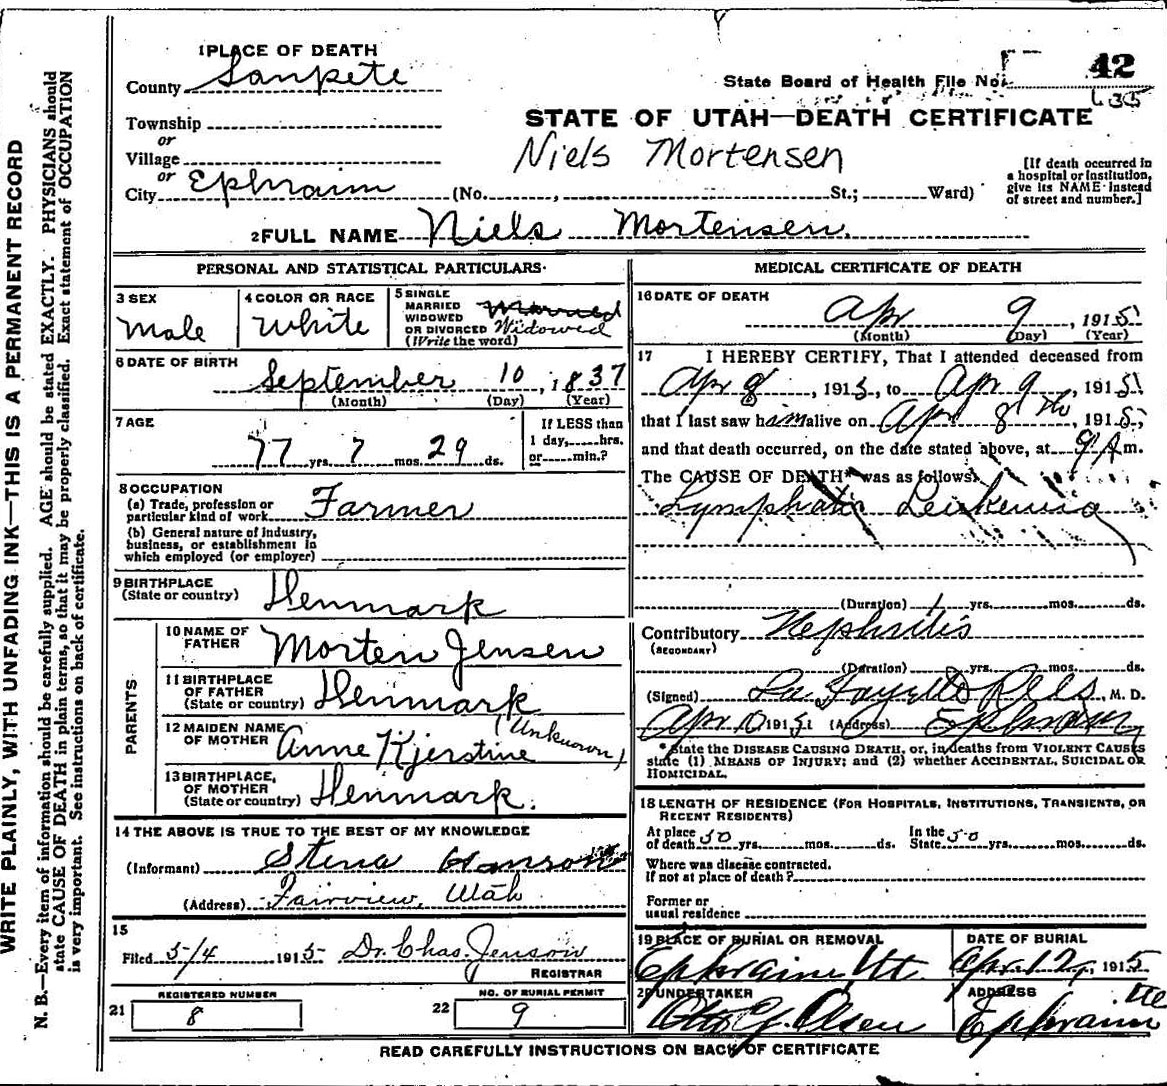 WRITE PLAINLY, WITH UNFADING INK—THIS IS A PERMANENT RECORD
N. B.—Every item of information should be carefully supplied. AGE should be stated EXACTLY. PHYSICIANS should
state CAUSE OF DEATH in plain terms, so that it may be properly classified. Exact statement of OCCUPATION
is very important. See instructions on back of certificate.
1 PLACE OF DEATH
County Sanpete
Township
or
Village
or
City Ephraim (No. , St.; Ward)
State Board of Health File No. 42
635
STATE OF UTAH—DEATH CERTIFICATE
Niels Mortensen
[If death occurred in
a hospital or institution,
give its NAME instead
of street and number.]
2 FULL NAME Niels Mortensen.
PERSONAL AND STATISTICAL PARTICULARS
3 SEX
Male
4 COLOR OR RACE
White
5 SINGLE
MARRIED
WIDOWED
OR DIVORCED
(Write the word)
Married
Widowed
6 DATE OF BIRTH
September 10, 1837
(Month) (Day) (Year)
7 AGE
77 yrs. 7 mos. 29 ds.
If LESS than
1 day, hrs.
or min.?
8 OCCUPATION
(a) Trade, profession or
particular kind of work Farmer
(b) General nature of industry,
business, or establishment in
which employed (or employer)
9 BIRTHPLACE
(State or country) Denmark
PARENTS
10 NAME OF
FATHER Morten Jensen
11 BIRTHPLACE
OF FATHER
(State or country) Denmark
12 MAIDEN NAME
OF MOTHER Anne Kjerstine (Unknown)
13 BIRTHPLACE
OF MOTHER
(State or country) Denmark.
14 THE ABOVE IS TRUE TO THE BEST OF MY KNOWLEDGE
(Informant) Stena Hanson
(Address) Fairview, Utah
15
Filed 5/4 1915 Dr. Chas. Jenson
REGISTRAR
21 REGISTERED NUMBER
8
22 NO. OF BURIAL PERMIT
9
MEDICAL CERTIFICATE OF DEATH
16 DATE OF DEATH
Apr 9, 1915
(Month) (Day) (Year)
17 I HEREBY CERTIFY, That I attended deceased from
Apr 8, 1915, to Apr 9, 1915
that I last saw him alive on Apr 8th, 1915,
and that death occurred, on the date stated above, at 9 A m.
The CAUSE OF DEATH* was as follows:
Lymphatic Leukemia
(Duration) 1 yrs. mos. ds.
Contributory Nephritis
(SECONDARY)
(Duration) yrs. mos. ds.
(Signed) La Fayette Rees, M. D.
Apr 10 1915 (Address) Ephraim
* State the DISEASE CAUSING DEATH, or, in deaths from VIOLENT CAUSES
state (1) MEANS OF INJURY; and (2) whether ACCIDENTAL, SUICIDAL OR
HOMICIDAL.
18 LENGTH OF RESIDENCE (FOR HOSPITALS, INSTITUTIONS, TRANSIENTS, OR
RECENT RESIDENTS)
At place
of death 50 yrs. mos. ds.
In the
State 50 yrs. mos. ds.
Where was disease contracted.
If not at place of death?
Former or
usual residence
19 PLACE OF BURIAL OR REMOVAL
Ephraim Ut
DATE OF BURIAL
Apr. 12, 1915
20 UNDERTAKER
Otto Y. Olsen
ADDRESS
Ephraim Ut
READ CAREFULLY INSTRUCTIONS ON BACK OF CERTIFICATE